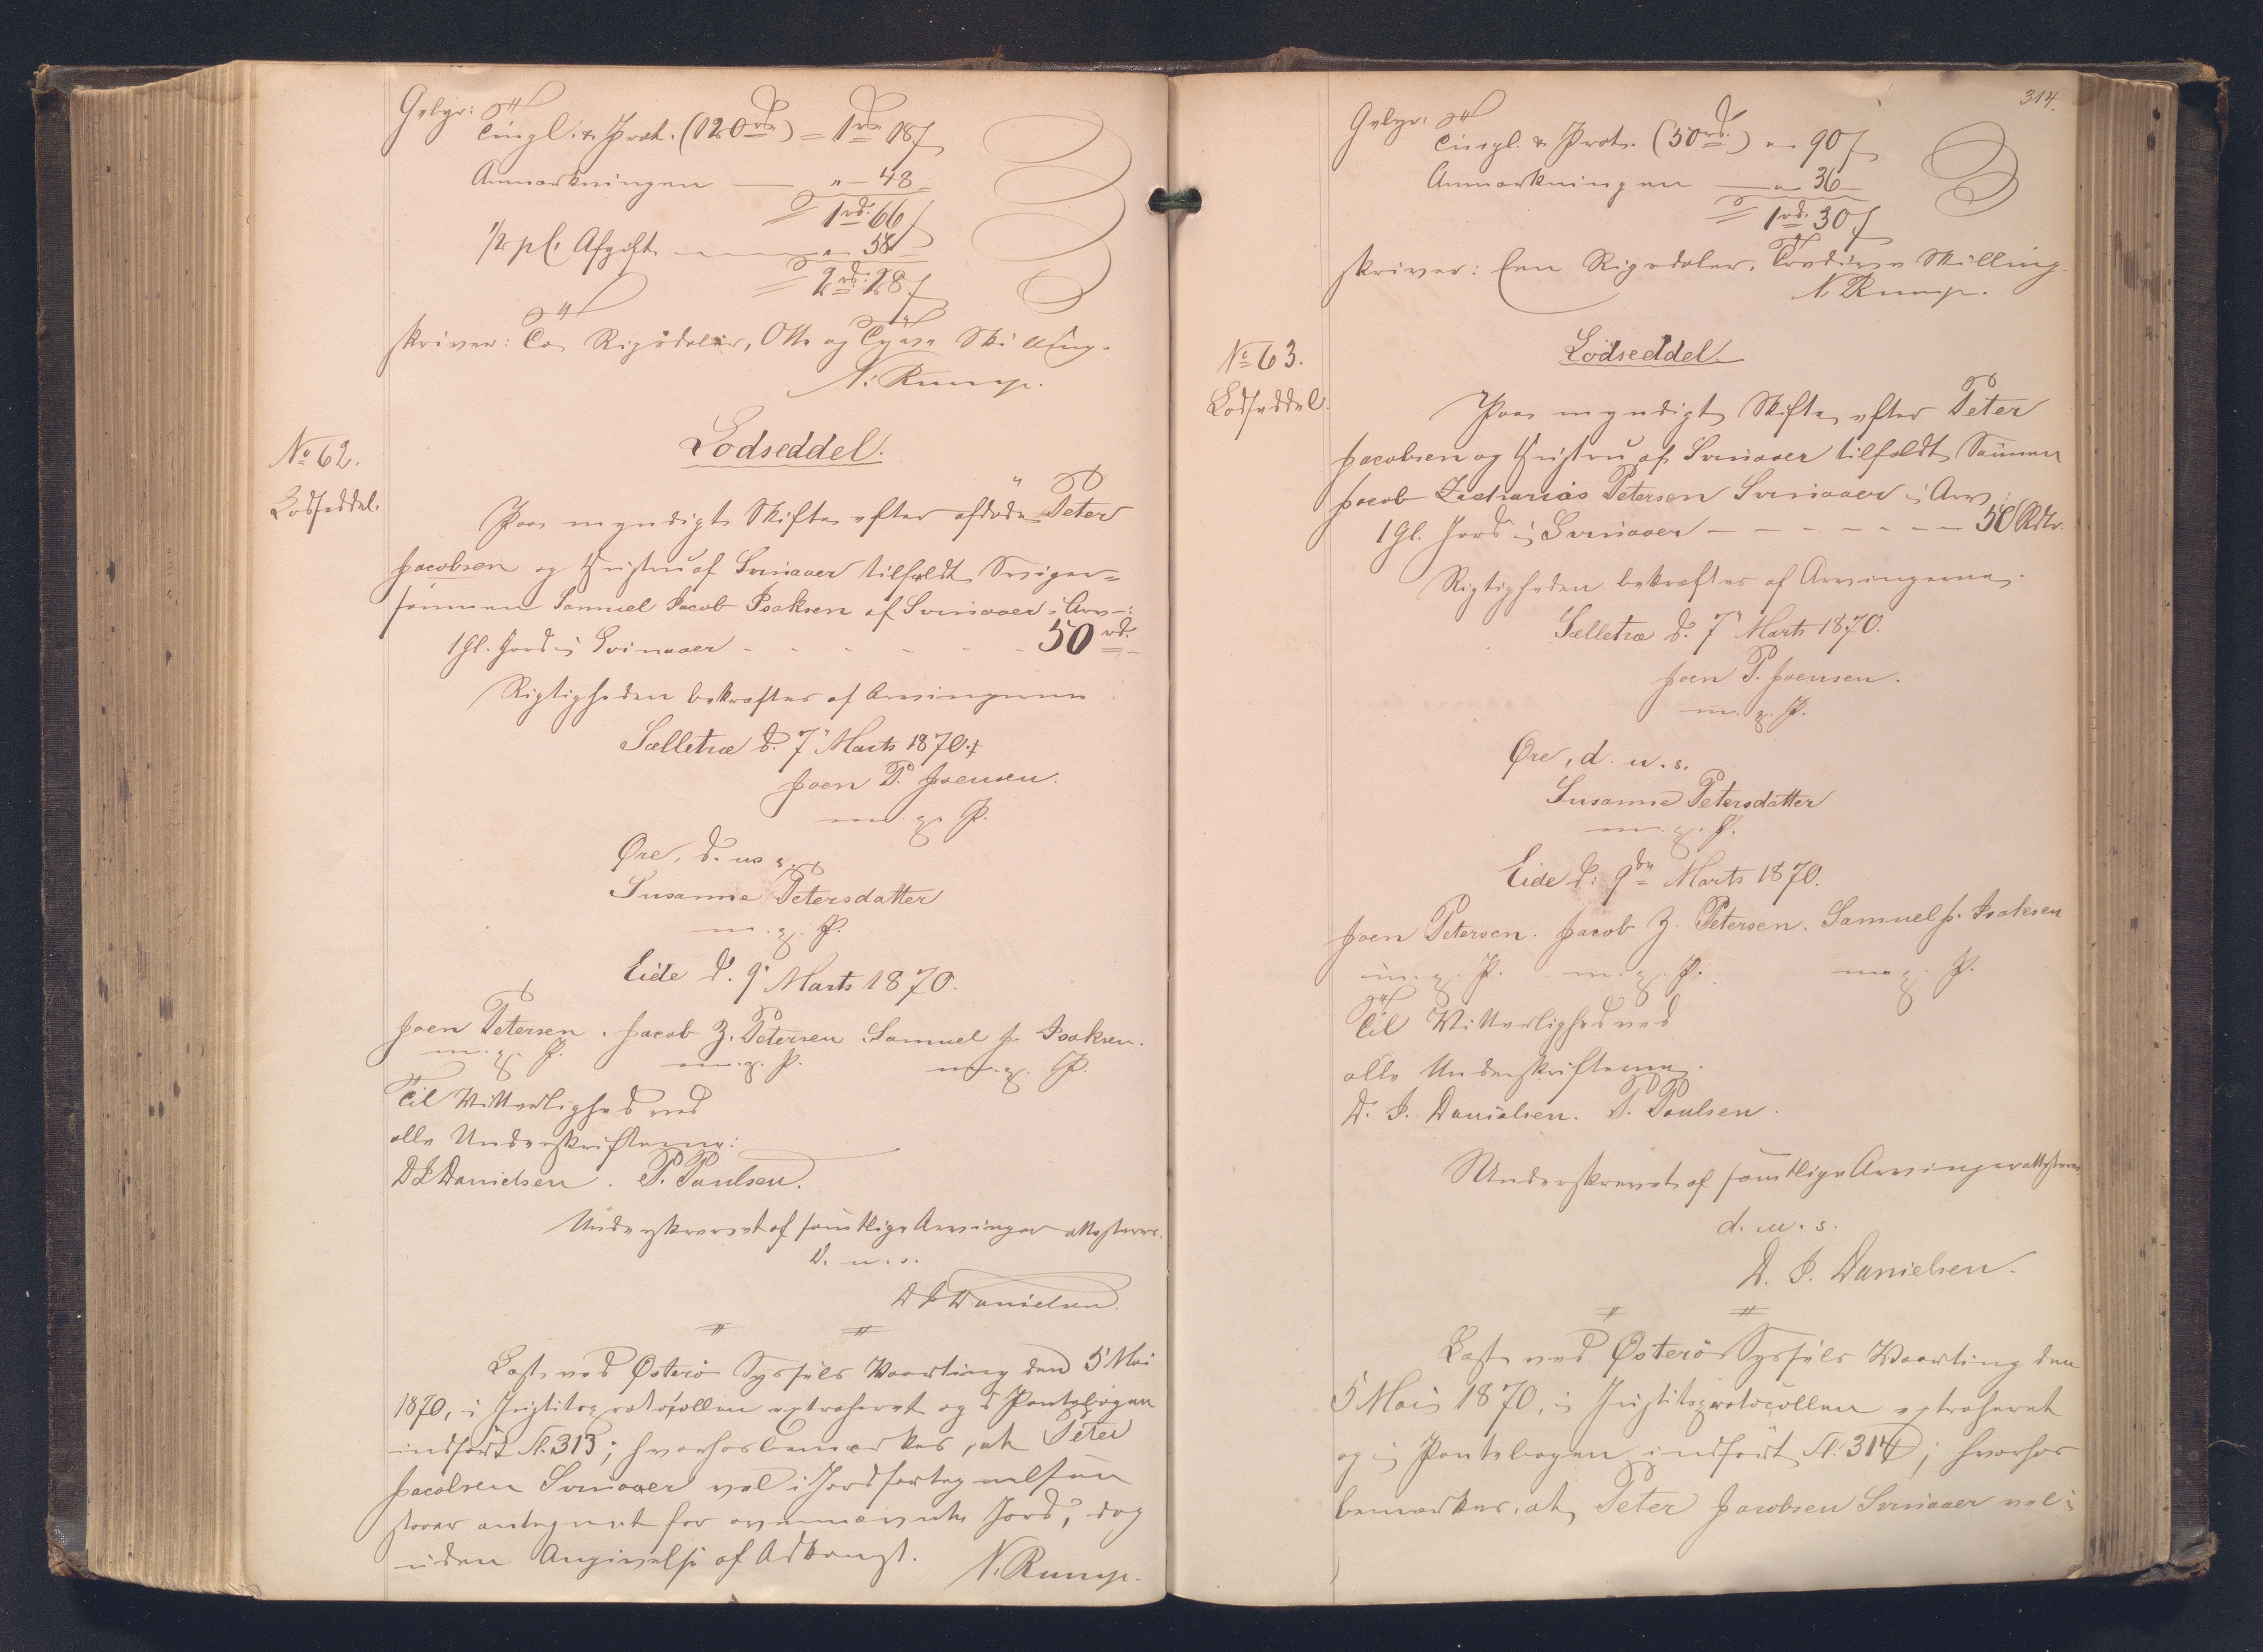 Gebyr:
Tingl. & Prot. (120 rd.) = 1 rd. 18 ſ
Anmærkningen — " — 48 -
= 1 rd. 66 ſ
½ pCt. Afgift — " 58
= 2 rd. 28 ſ
skriver: To Rigsdaler, Otte og Tyve Skilling.
N. Rump.
No 62.
Lodseddel.
Lodseddel.
Paa myndigt Skifte efter afdøde Peter
Jacobsen og Hustru af Svinaaer tilfaldt Sviger=
sønnen Samuel Jacob Isaksen af Svinaaer i Arv:
1 Gl. Jord i Svinaaer - - - - - - 50 rd.
Rigtigheden bekræftes af Arvingerne
Selletræ d. 7" Marts 1870.
Joen P. Joensen.
m. p. P.
Øre, d. u. s.
Susanne Petersdatter
m. p. P.
Eide d. 9' Marts 1870.
Joen Petersen. Jacob Z. Petersen Samuel J. Isaksen.
m. p. P. m. p. P. m. p. P.
Til Vitterlighed ved
alle Underskrifterne:
D J Danielsen. P. Poulsen.
Underskrevet af samtlige Arvinger attesteres.
D. u. s.
D J Danielsen.
Læst ved Østerø Syssels Vaarting den 5 Mai
1870, i Justitsprotocollen extraheret og i Pantebogen
indført fl. 313; hvorhos bemærkes, at Peter
Jacobsen Svinaaer vel i Jordfortegnelsen
staaer antegnet for ovennævnte Jord, dog
uden Angivelse af Adkomst.
N. Rump.
314.
Gebyr:
Tingl. & Prot. (50 rd.) " 90 ſ
Anmærkningen — " 36 -
= 1 rd. 30 ſ
skriver: Een Rigsdaler, Tredive Skilling.
N. Rump.
No 63.
Lodseddel.
Lodseddel
Paa myndigt Skifte efter Peter
Jacobsen og Hustru af Svinaaer tilfaldt Sønnen
Jacob Zacharias Petersen Svinaaer i Arv:
1 Gl. Jord i Svinaaer - - - - - - - 50 Rdlr.
Rigtigheden bekræftes af Arvingerne.
Selletræ d. 7" Marts 1870.
Joen P. Joensen.
m. p. P.
Øre, d. u. s.
Susanne Petersdatter
m. p. P.
Eide d. 9de Marts 1870.
Joen Petersen. Jacob Z. Petersen. Samuel J. Isaksen
m. p. P. m. p. P. m. p. P.
Til Vitterlighed ved
alle Underskrifterne.
D. J. Danielsen. P. Poulsen.
Underskrevet af samtlige Arvinger attesteres
d. u. s.
D. J. Danielsen.
Læst ved Østerø Syssels Vaarting den
5 Mai 1870, i Justitsprotocollen extraheret
og i Pantebogen indført fl. 314; hvorhos
bemærkes, at Peter Jacobsen Svinaaer vel i